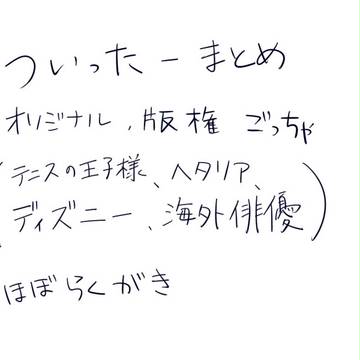 ついったーまとめ
オリジナル、版権 ごっちゃ
(テニスの王子様、ヘタリア、
ディズニー、海外俳優)
ほぼらくがき